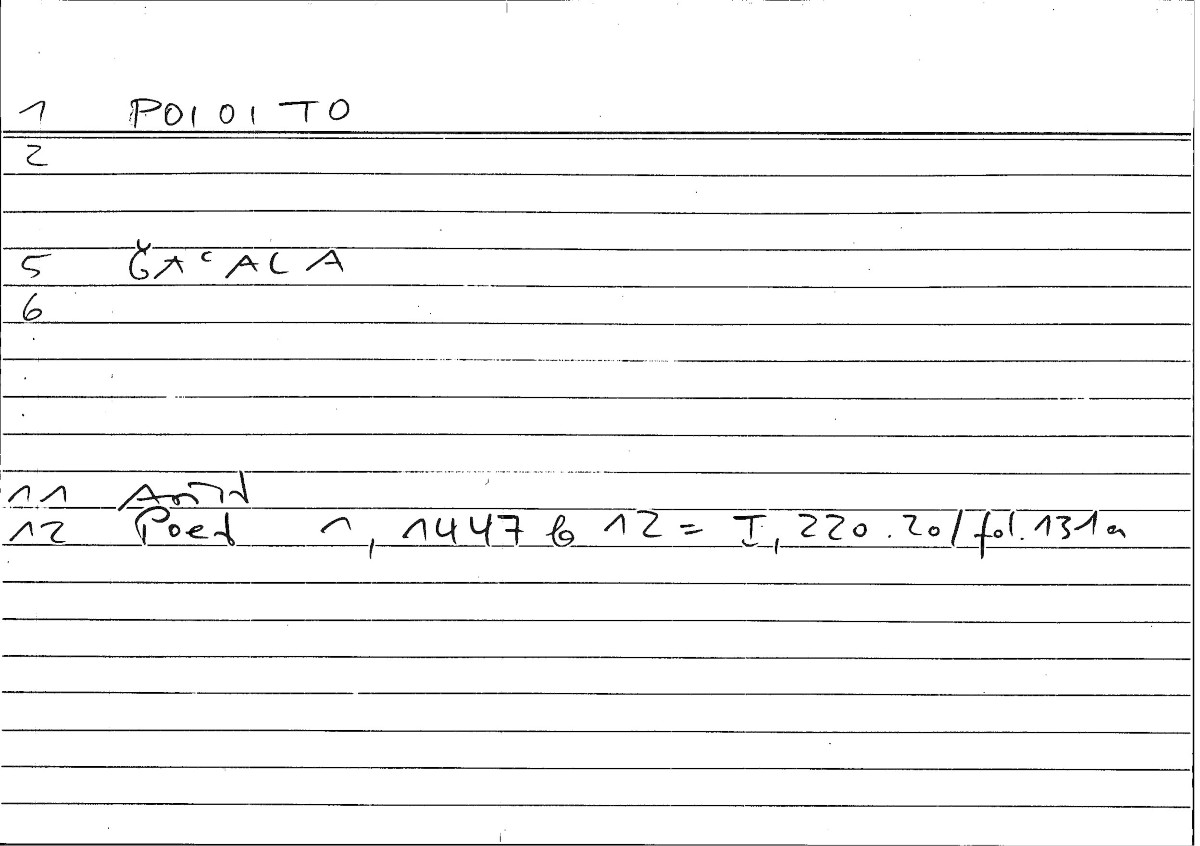 1 POIOITO
2
5 ǦAᶜALA
6
11
12 Poet 1, 1447 b 12 = I, 220.20/fol.131a